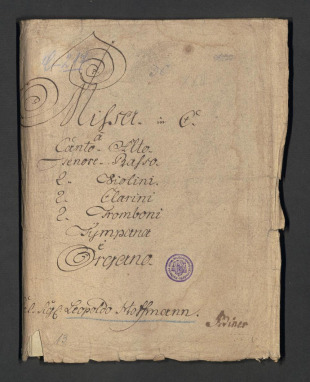 Missa in C.
a
Canto Alto
Tenore Basso
2 Violini
2 Clarini
2 Tromboni
Tympana
e
Organo
Del Sigl Leopoldo Hoffmann.
13